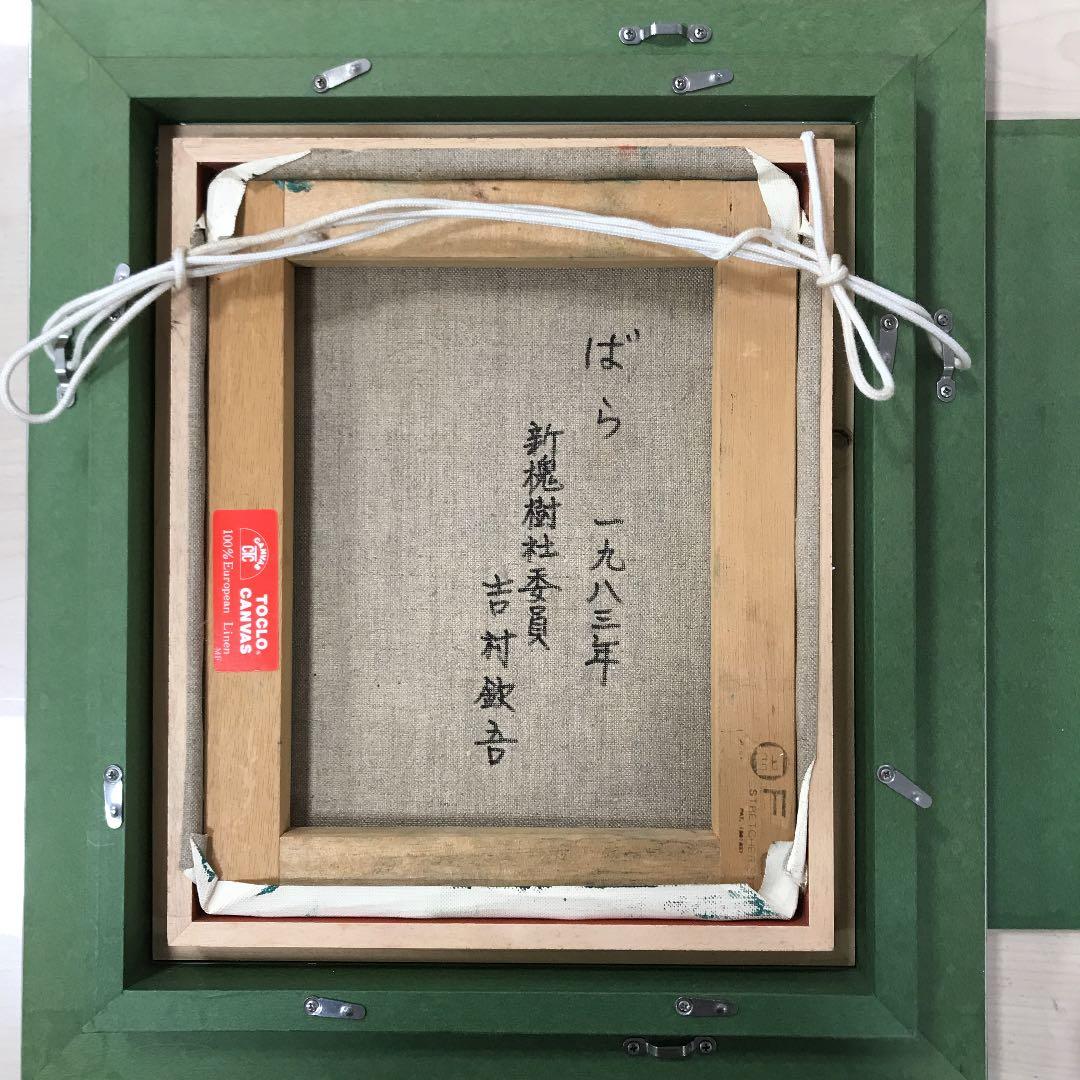 ばら 一九八三年
新槐樹社委員
吉村欽吾
CANVAS
CTC
TOCLO
CANVAS
100% European Linen
MF
F
STRETCHER